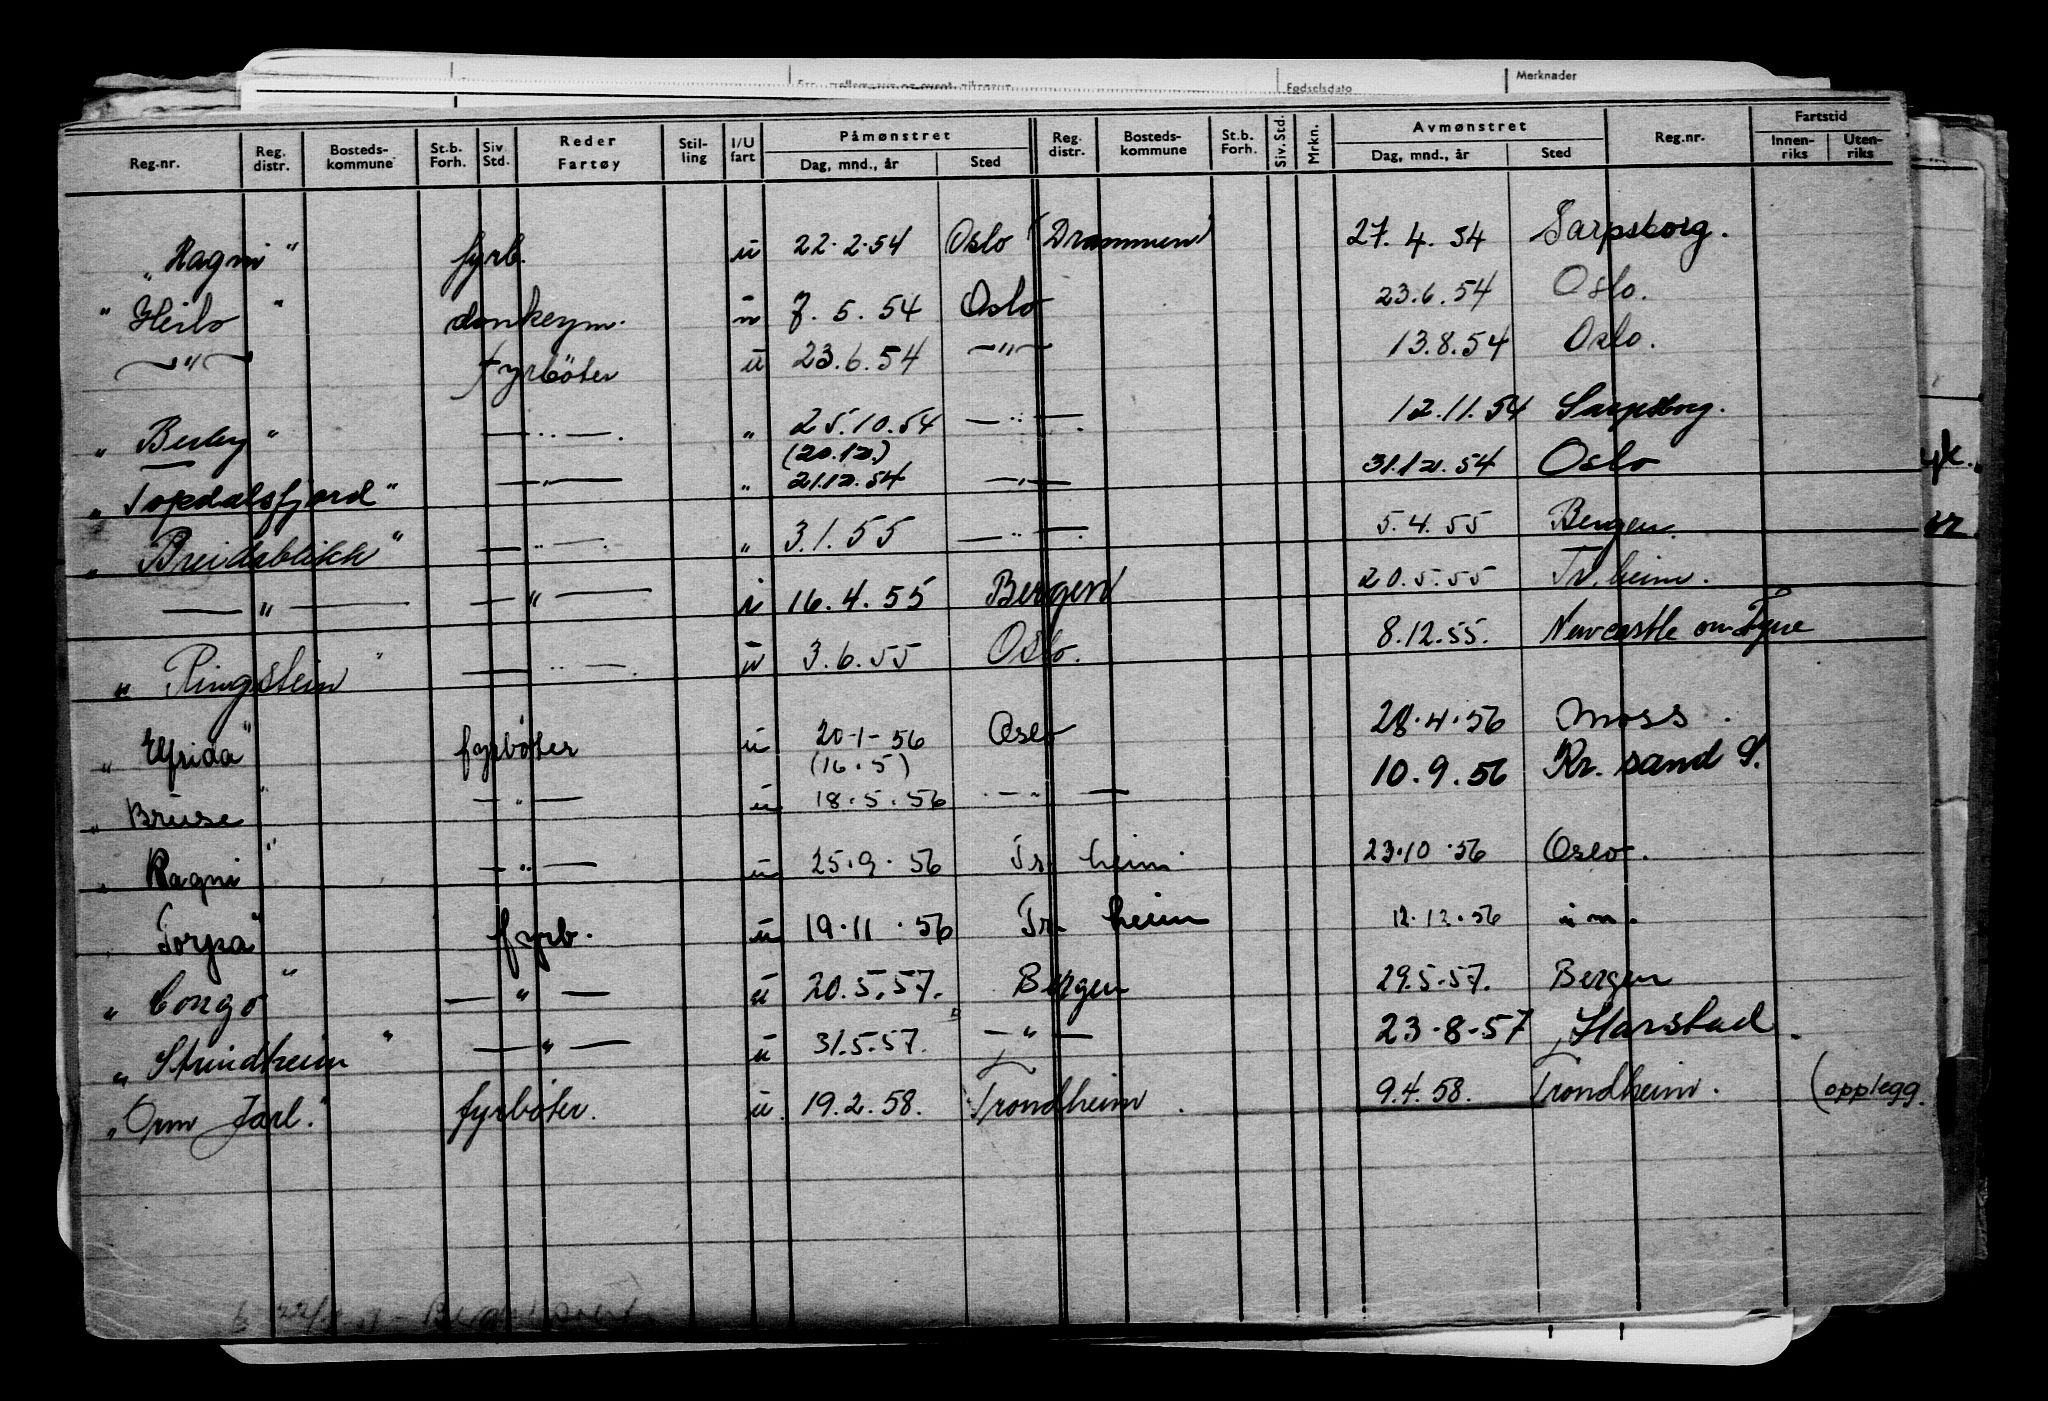 Fødselsdato Merknader
Reg.nr. Reg. distr. Bosteds-kommune St.b. Forh. Siv Std. Reder Fartøy Stil-ling I/U fart Påmønstret Dag, mnd., år Sted Reg. distr. Bosteds-kommune St.b. Forh. Siv. Std. Mrkn. Avmønstret Dag, mnd., år Sted Reg.nr. Fartstid Innen-riks Uten-riks
„Ragni" fyrb. u 22.2.54 Oslo (Drammen) 27.4.54 Sarpsborg.
"Heilo" donkeym. u 7.5.54 Oslo 23.6.54 Oslo.
—"— fyrböter u 23.6.54 —"— 13.8.54 Oslo.
„Berby" —"—. " 25.10.54 —"—. 12.11.54 Sarpsborg.
(20.12.)
„Topdalsfjord" —"— " 21.12.54 —"— 31.12.54 Oslo
„Breidablikk" —"—. " 3.1.55 —"—. 5.4.55 Bergen.
—"— —"— i 16.4.55 Bergen 20.5.55 Tr.heim.
„Ringstein" —"— u 3.6.55 Oslo. 8.12.55. Newcastle on Tyne
„Elfrida" fyrbøter u 20-1-56 Oslo 28.4.56 Moss.
(16.5)
„Bruse" —"— u 18.5.56 —"— 10.9.56 Kr.sand S.
„Ragni" —"— u 25.9.56 Tr. heim 23.10.56 Oslo.
„Torpa" fyrb. u 19.11.56 Tr. heim 12.12.56
„Congo" —"— u 20.5.57. Bergen 29.5-57. Bergen
„Strindheim" —"— u 31.5.57. —"— 23-8-57 Harstad.
„Orm Jarl." fyrbøter. u. 19.2.58. Trondheim. 9.4.58. Trondheim. (opplegg.